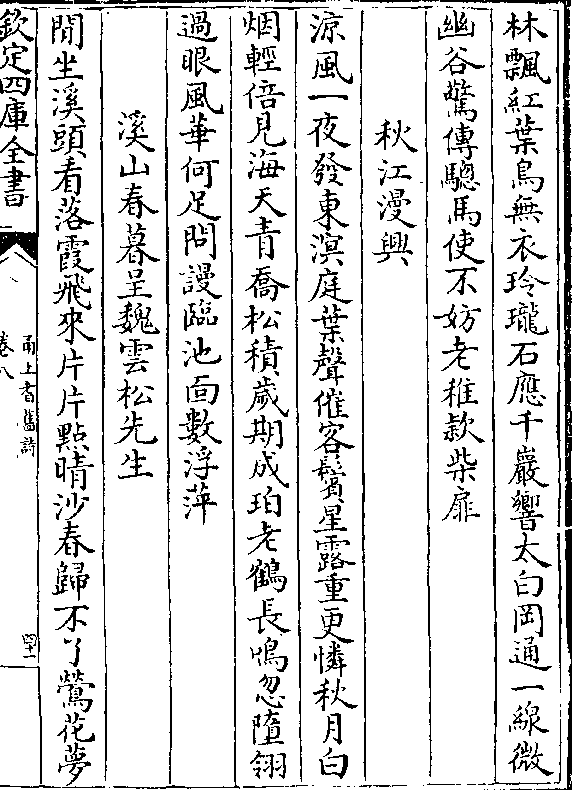 林飄紅葉鳥無衣玲瓏石應千巖響太白岡通一線微
幽谷驚傳驄馬使不妨老稚款柴扉
秋江漫興
涼風一夜發東溟庭葉聲催客鬢星露重更憐秋月白
烟輕倍見海天青喬松積歲期成珀老鶴長鳴忽墮翎
過眼風華何足問謾臨池面數浮萍
溪山春暮呈魏雲松先生
閒坐溪頭看落霞飛來片片點晴沙春歸不了鶯花夢
欽定四庫全書
甬上耆舊詩
卷八
四十一